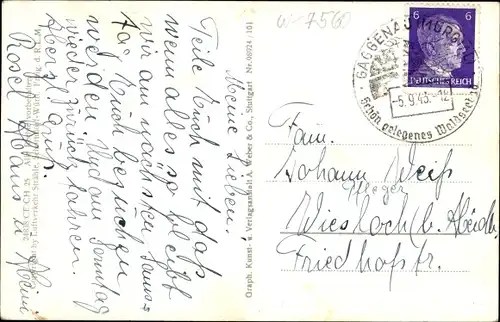 W-7560
Meine Lieben.
Teile Euch mit das
wenn alles so bleibt
wir am nächsten Sams-
tag Euch besuchen
werden. Und am Sonntag
wieder zurück fahren.
Herzl. Grüße
Rosel Hans u. Heini
Graph. Kunst- u. Verlagsanstalt A. Weber & Co., Stuttgart
GAGGENAU (MURGTAL)
-5.9.43.-18
Schön gelegenes Waldseebad
6 6
DEUTSCHES REICH
Fam.
Johann Weiß
Pfleger
Wiesloch (b. Heidelb.
Friedhofstr.